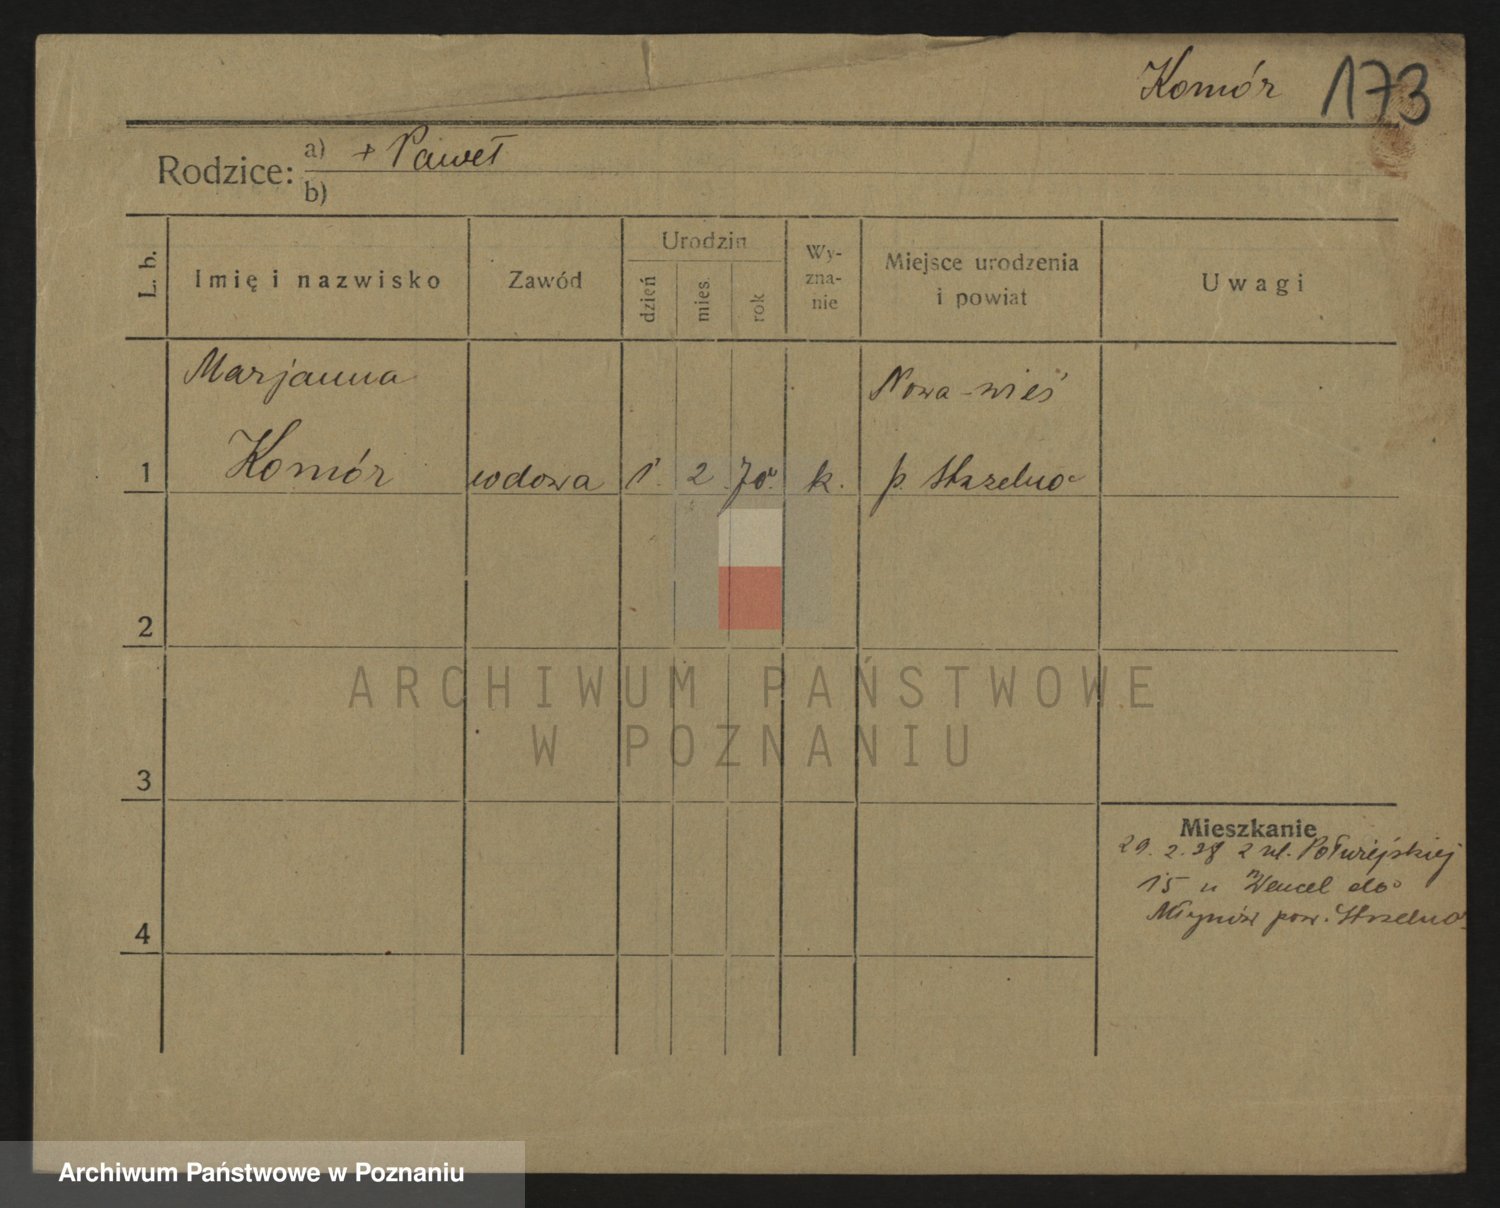 Komór 173
Rodzice: a) + Paweł
b)
L. b.
Imię i nazwisko
Zawód
Urodzin
dzień
mies.
rok
Wy-
zna-
nie
Miejsce urodzenia
i powiat
Uwagi
Marjanna
Nowa-wieś
1 Komór wdowa 1. 2. 70r. k. p. Strzelno
2
ARCHIWUM PAŃSTWOWE
W POZNANIU
3
Mieszkanie
29. 2. 28 z ul. Półwiejskiej
15 u Wencel do
Młynów pow. Strzelno
4
Archiwum Państwowe w Poznaniu